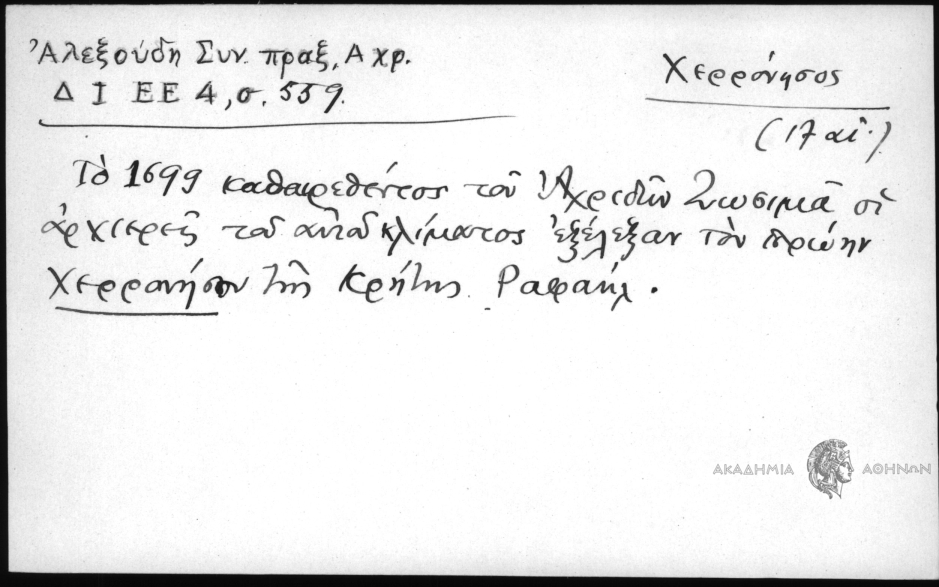 Ἀλεξούδη Συν. πραξ. Αχρ.
Δ Ι ΕΕ 4, σ. 559.
Χερρόνησος
(17 αἰ.)
Τὸ 1699 καθαιρεθέντος τοῦ Ἀχριδῶν Ζωσιμᾶ οἱ
ἀρχιερεῖς τοῦ αὐτοῦ κλίματος ἐξέλεξαν τὸν πρώην
Χερρονήσου τῆς Κρήτης Ραφαήλ.
ΑΚΑΔΗΜΙΑ ΑΘΗΝΩΝ